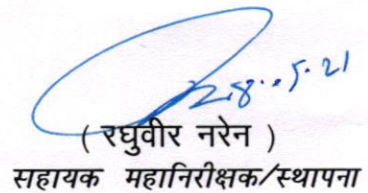 28.5.21
( रघुवीर नरेन )
सहायक महानिरीक्षक/स्थापना